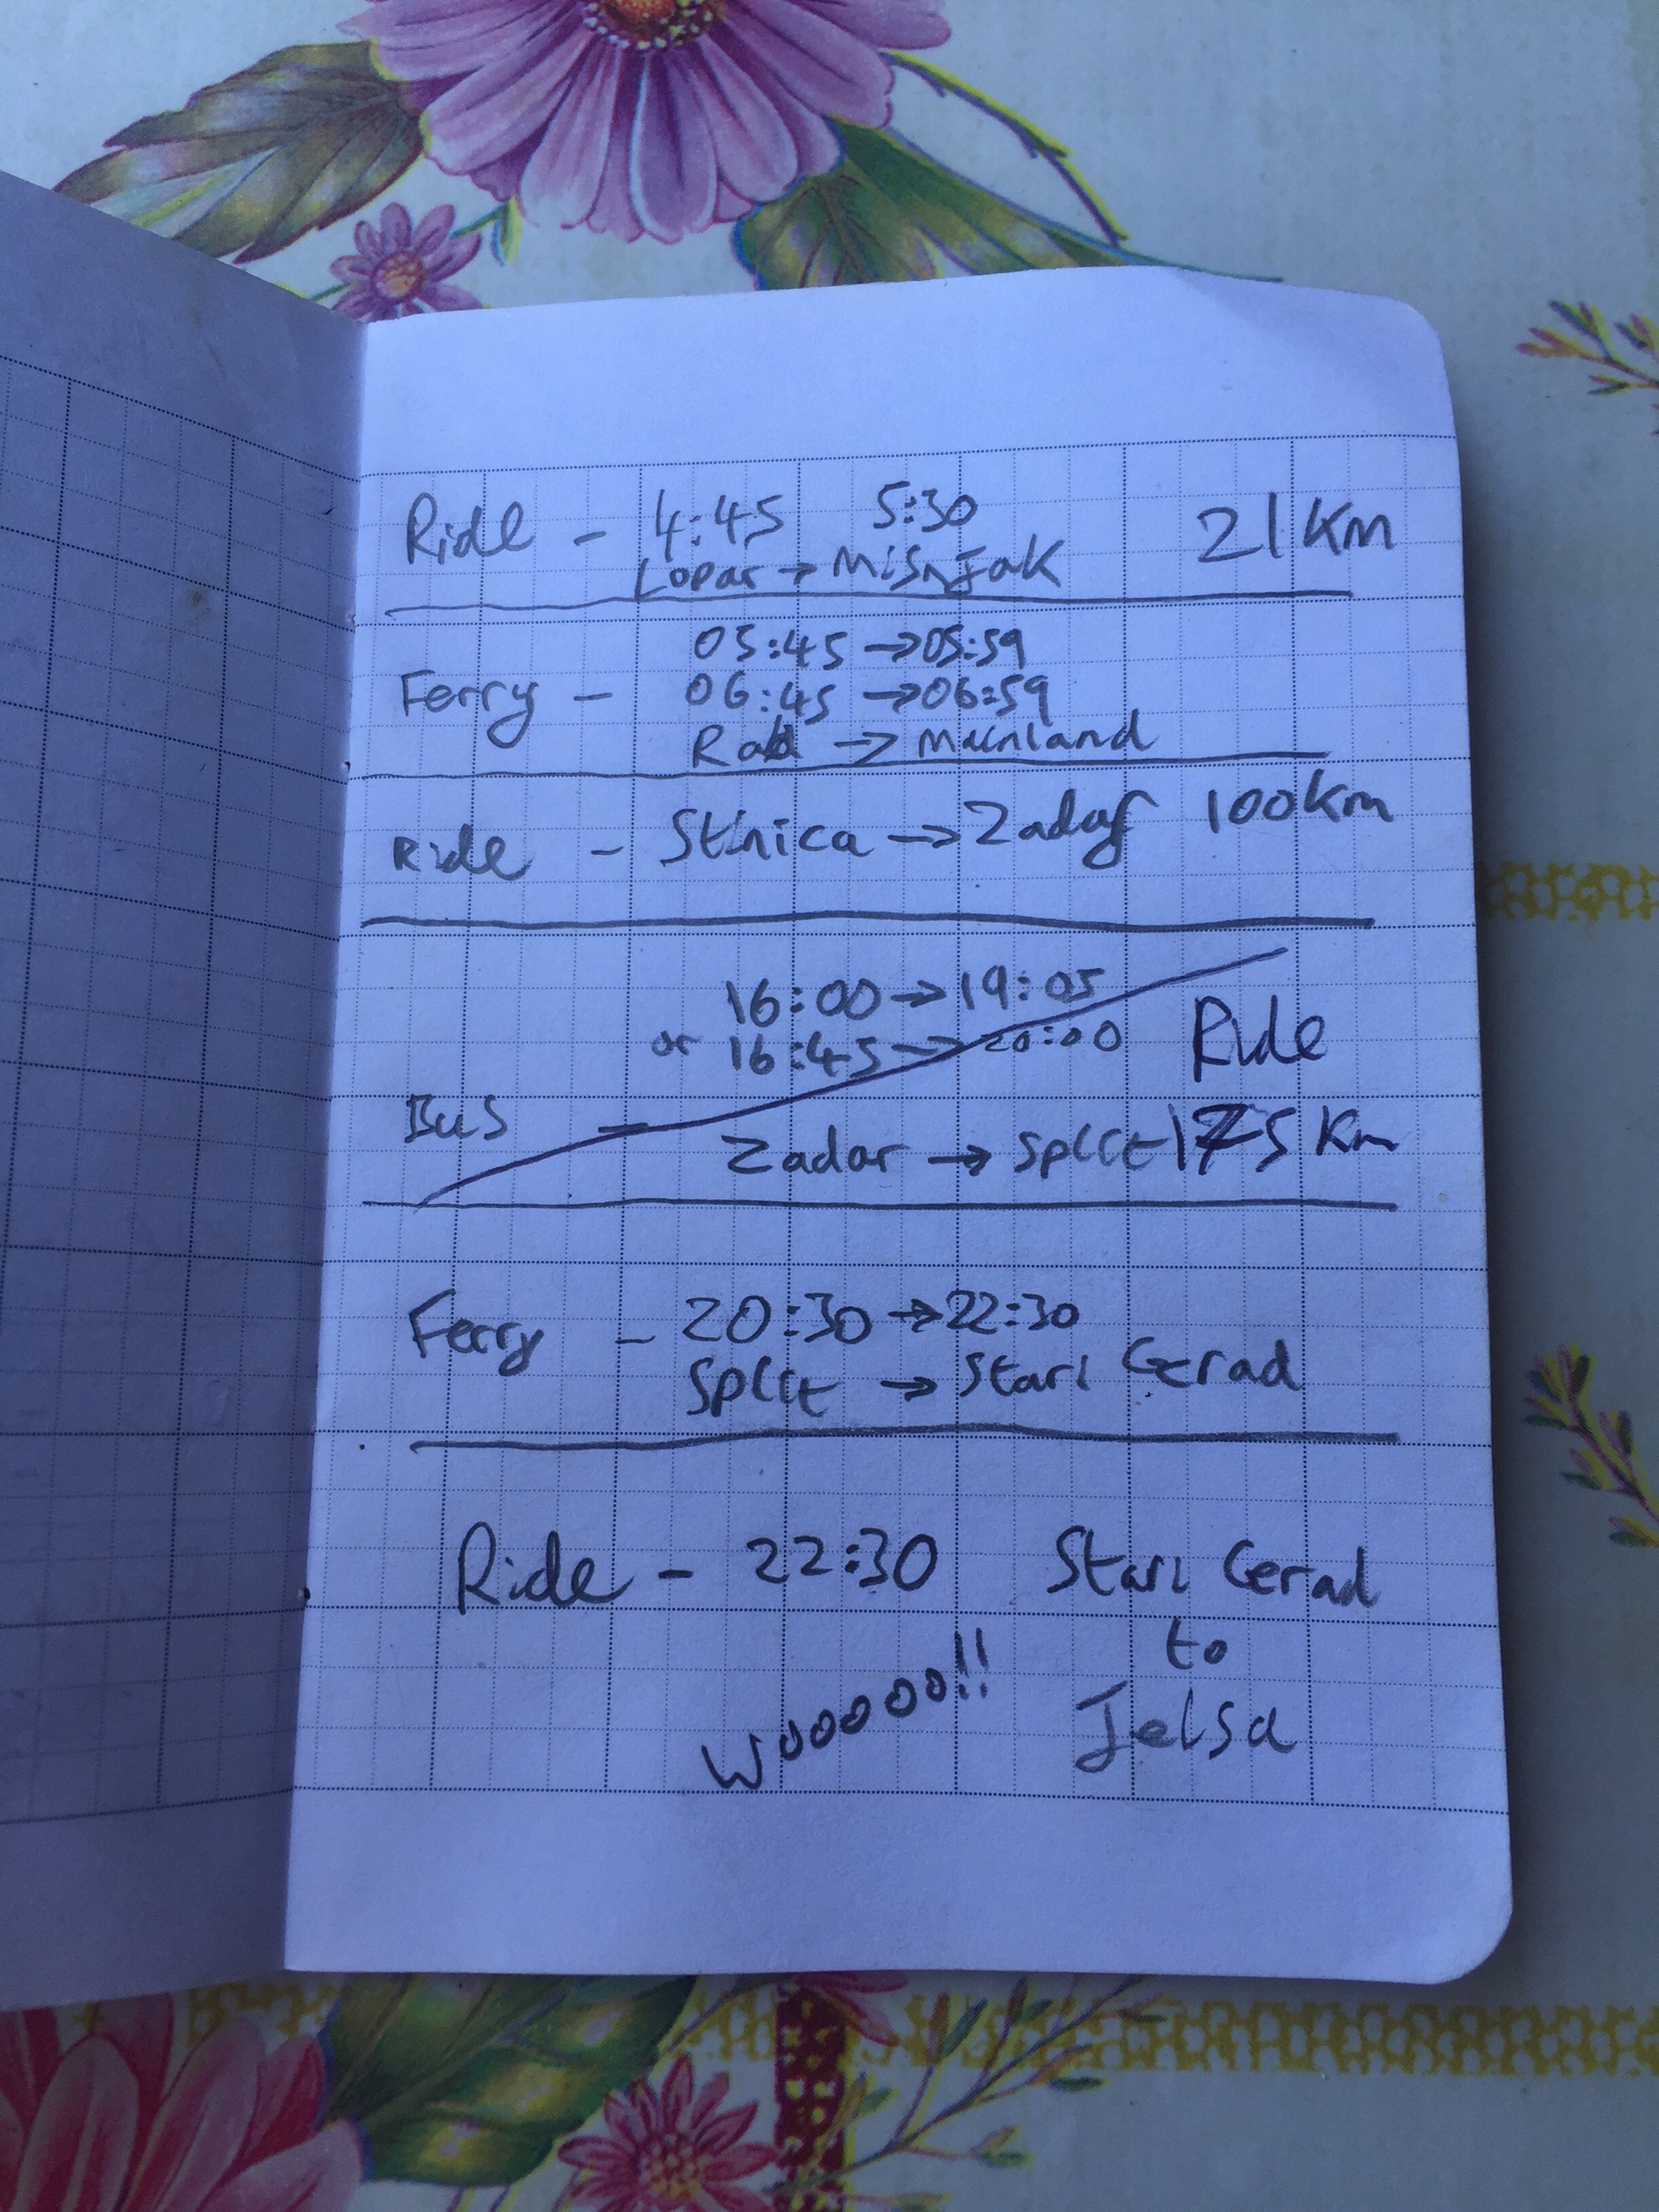 Ride - 4:45 5:30 21 Km
Lopar → Misnjak
05:45 → 05:59
Ferry - 06:45 → 06:59
Rab → Mainland
Ride - Stinica → Zadar 100km
16:00 → 19:05
or 16:45 → 20:00 Ride
Bus -
Zadar → Split 175 Km
Ferry - 20:30 → 22:30
Split → Stari Gerad
Ride - 22:30 Stari Gerad
to
Wooooo!! Jelsa